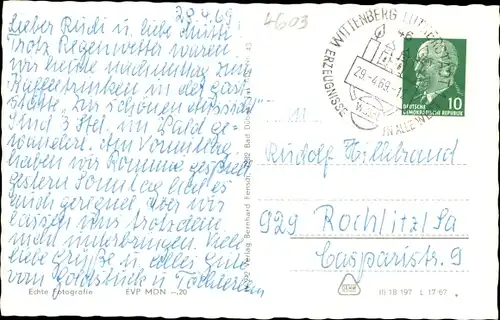 28.4.69
4603
Lieber Rudi u. liebe
Trotz Regenwetter waren
wir heute nachmittag zum
Kaffeetrinken in der Gast-
stätte „Zur schönen Aussicht"
sind 3 Std. im Wald ge-
wandert. Am Vormittag
haben wir Rommé gespielt
gestern Sonntag hat es
auch geregnet aber wir
lassen uns trotzdem
nicht unterkriegen. Viele
liebe Grüße u. alles Gute
vom Goldstück u. Töchterlein
Echte Fotografie EVP MDN –.20
Verlag Bernhard Fensch, Bad Dü
WITTENBERG LUTHERSTADT
46
29.-4.69.-1
ERZEUGNISSE
IN ALLER WELT
DEUTSCHE
DEMOKRATISCHE REPUBLIK
10
Rudolf Hillebrand
929 Rochlitz/Sa
Casparistr. 9
III 18 197 L 17/67